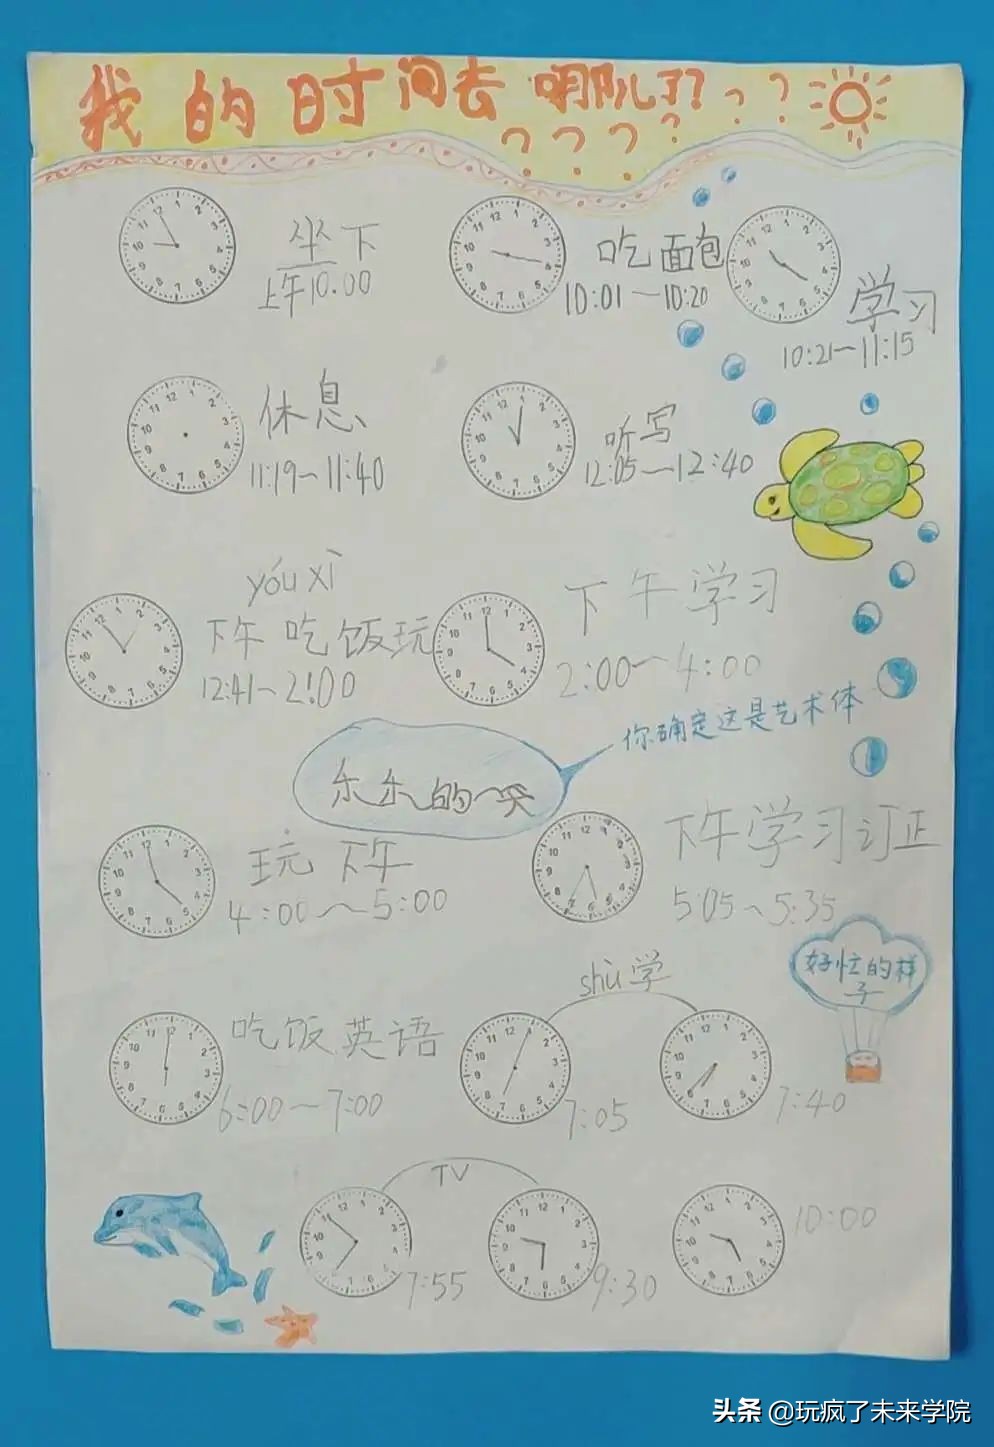 我的时间去哪儿了？？？
？？？？
坐下
上午10:00
吃面包
10:01～10:20
学习
10:21～11:15
休息
11:19～11:40
听写
12:05～12:40
yóu xì
下午吃饭玩
12:41～2:00
下午学习
2:00～4:00
你确定这是艺术体
乐乐的一天
玩 下午
4:00～5:00
下午学习订正
5:05～5:35
好忙的样
子
吃饭英语
6:00～7:00
shù学
7:05
7:40
TV
7:55
9:30
10:00
头条 @玩疯了未来学院